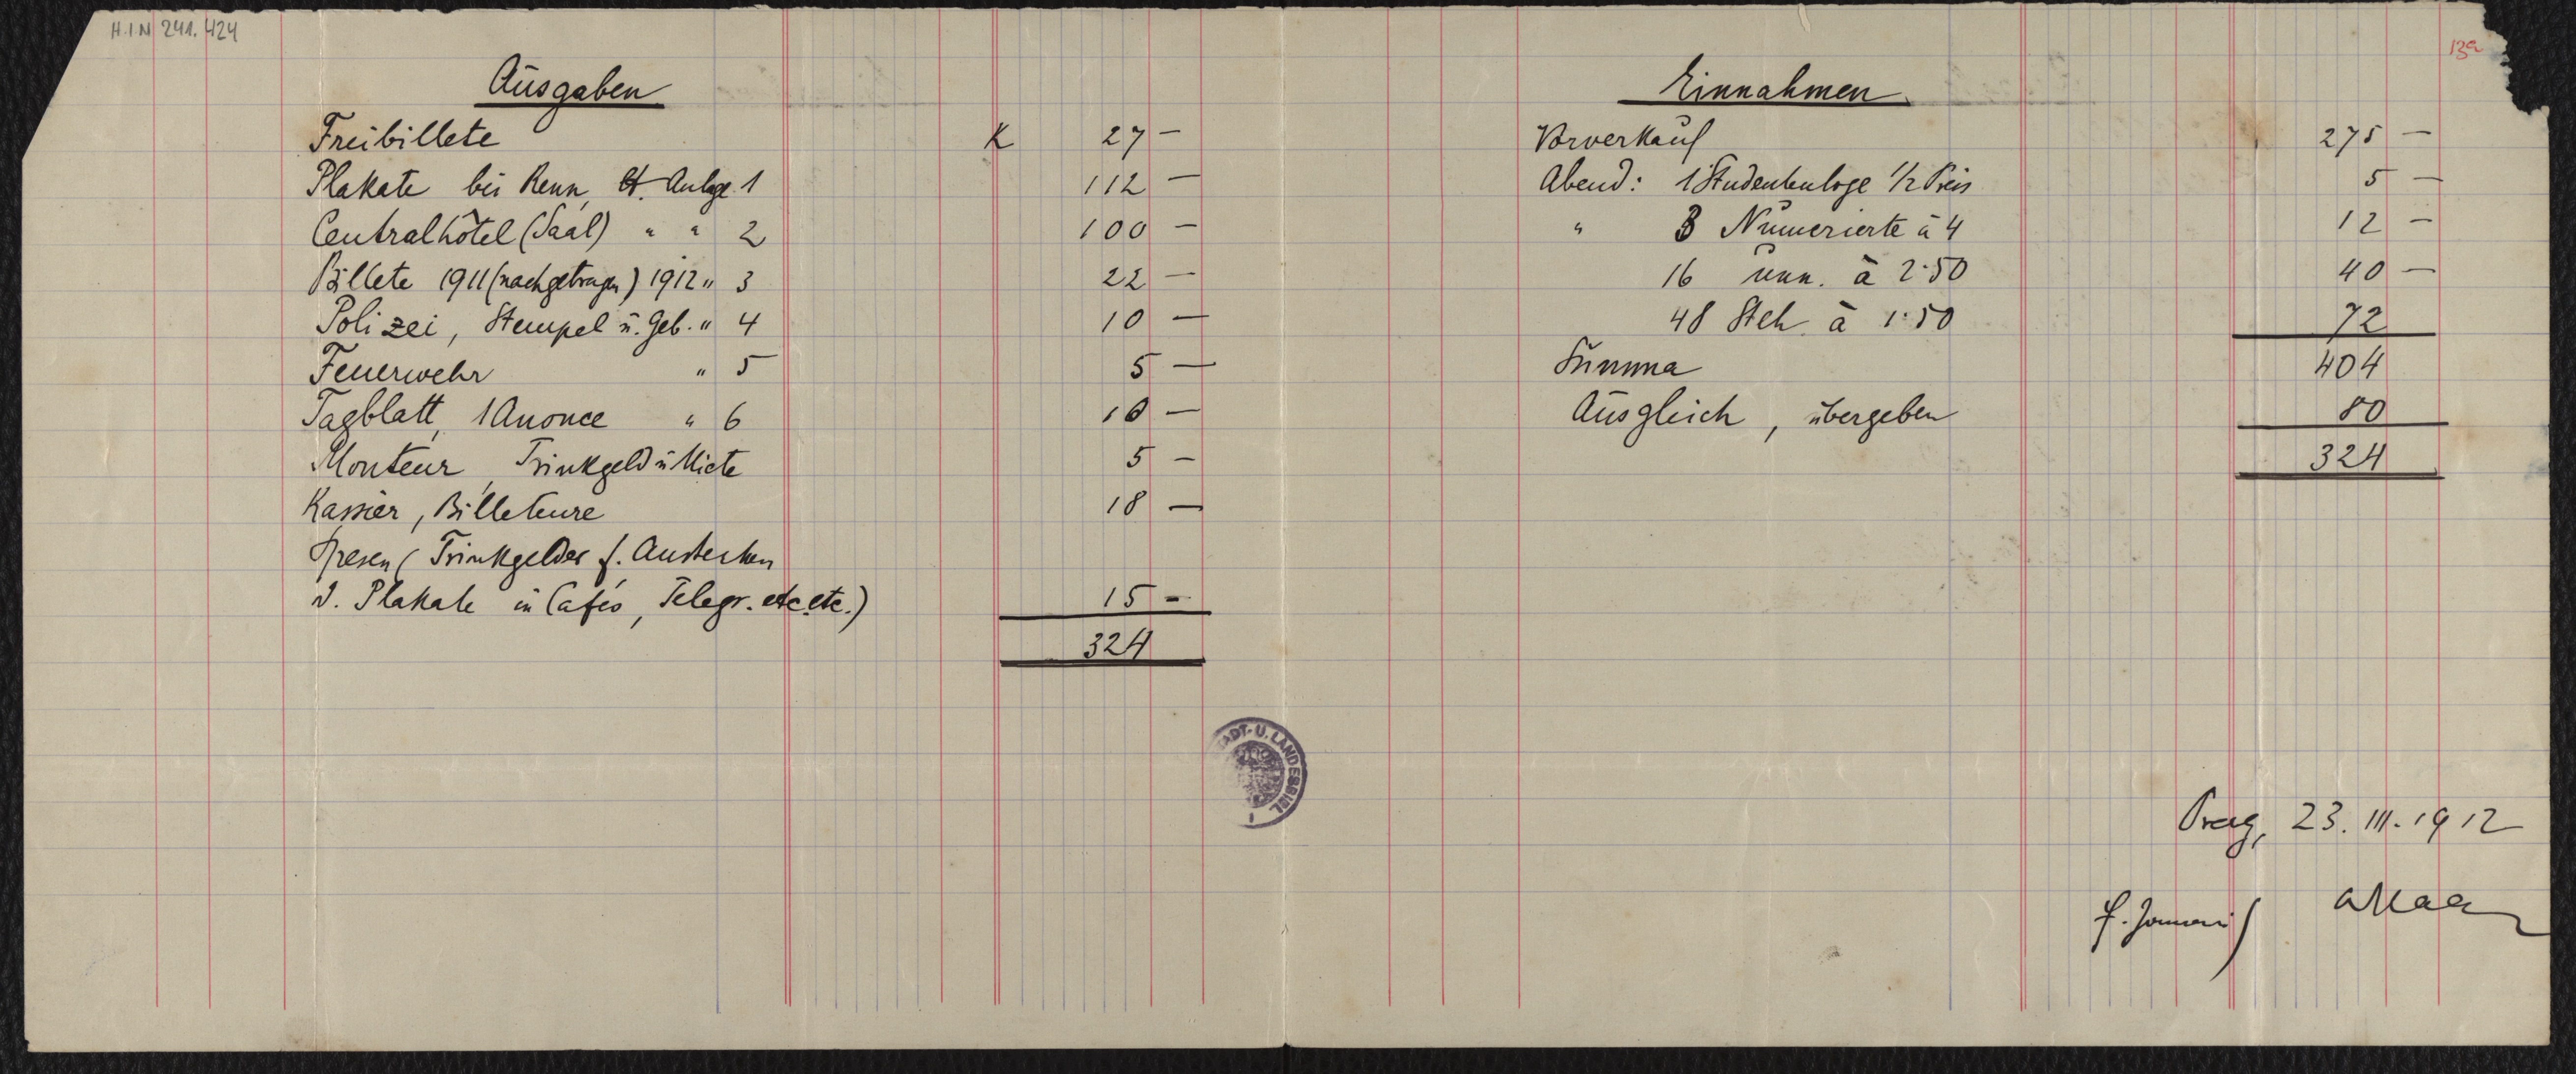 H.I.N 241.424
13a
Ausgaben
Freibillete K 27 —
Plakate bei Renn, lt. Anlage 1 112 —
Centralhôtel (Saal) " " 2 100 —
Billete 1911 (nachgetragen) 1912 " 3 22 —
Polizei, Stempel u. Geb. " 4 10 —
Feuerwehr " 5 5 —
Tagblatt, 1 Anonce " 6 10 —
Monteur, Trinkgeld u Miete 5 —
Kassier, Billeteure 18 —
Spesen (Trinkgelder f.
d. Plakate in Cafés, Telegr. etc. etc.) 15 —
324
Einnahmen
Vorverkauf 275 —
Abend: 1 Studentenloge 1/2 Preis 5 —
" 3 Numerierte à 4 12 —
16 unn. à 2·50 40 —
48 Steh à 1·50 72
Summa 404
Ausgleich, übergeben 80
324
STADT-U. LANDESBIBL
Prag, 23. III. 1912